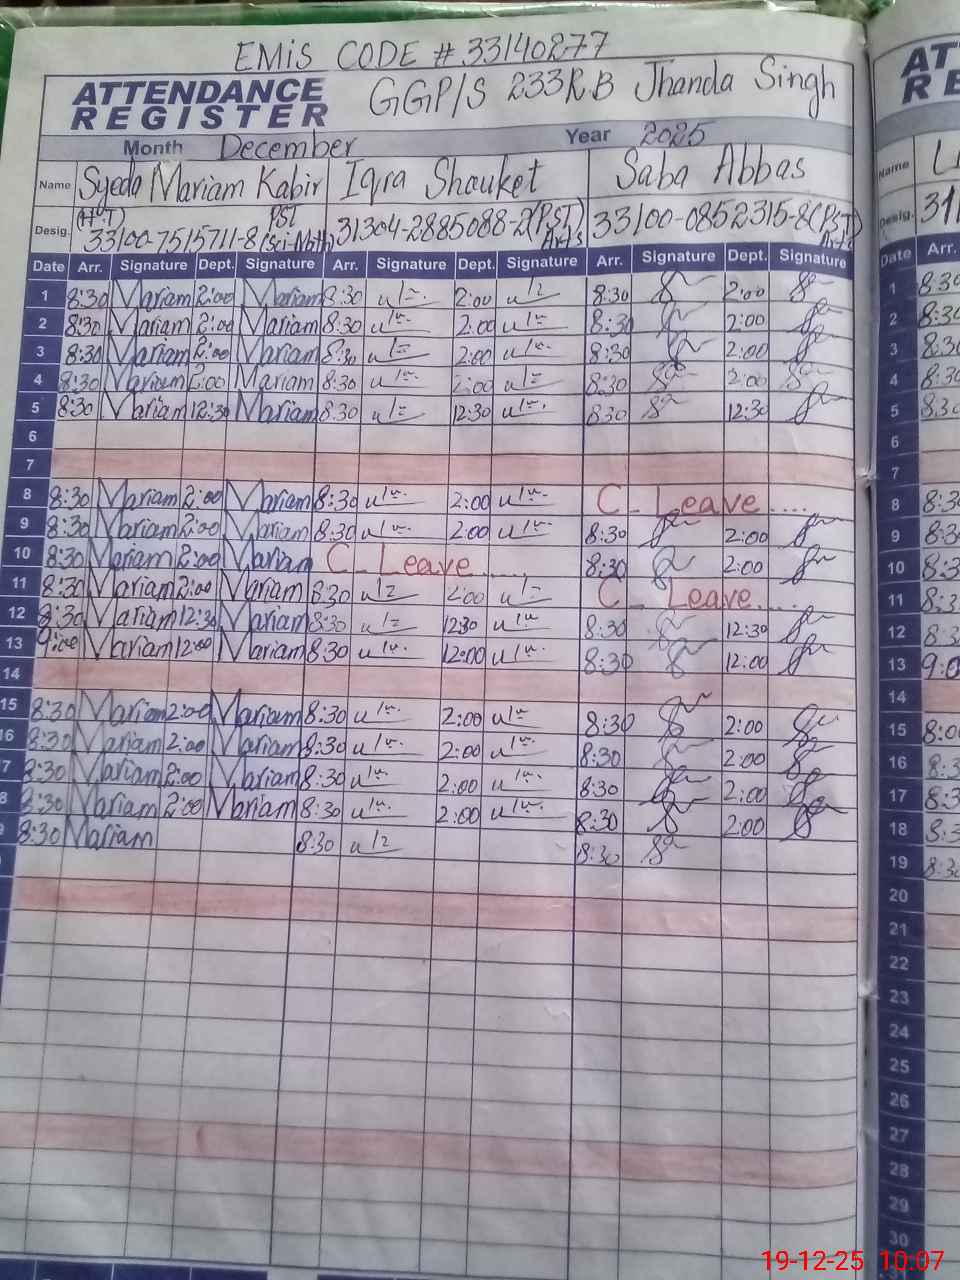 EMiS CODE # 33140277
ATTENDANCE REGISTER GGP/S 233R.B Jhanda Singh
Month December Year 2025
Name Syeda Mariam Kabir Iqra Shouket Saba Abbas
Desig. (H.T) 33100-7515711-8 PST (Sci-Math) 31304-2885088-2 (PST) Arts 33100-0852315-8 (PST) Arts
Date Arr. Signature Dept. Signature Arr. Signature Dept. Signature Arr. Signature Dept. Signature
1 8:30 Mariam 2:00 Mariam 8:30 2:00 8:30 2:00
2 8:30 Mariam 2:00 Mariam 8:30 2:00 8:30 2:00
3 8:30 Mariam 2:00 Mariam 8:30 2:00 8:30 2:00
4 8:30 Mariam 2:00 Mariam 8:30 2:00 8:30 2:00
5 8:30 Mariam 12:30 Mariam 8:30 12:30 8:30 12:30
6
7
8 8:30 Mariam 2:00 Mariam 8:30 2:00 C_ Leave....
9 8:30 Mariam 2:00 Mariam 8:30 2:00 8:30 2:00
10 8:30 Mariam 2:00 Mariam C_ Leave...... 8:30 2:00
11 8:30 Mariam 2:00 Mariam 8:30 2:00 C_ Leave.....
12 8:30 Mariam 12:30 Mariam 8:30 12:30 8:30 12:30
13 9:00 Mariam 12:00 Mariam 8:30 12:00 8:30 12:00
14
15 8:30 Mariam 2:00 Mariam 8:30 2:00 8:30 2:00
16 8:30 Mariam 2:00 Mariam 8:30 2:00 8:30 2:00
7 8:30 Mariam 2:00 Mariam 8:30 2:00 8:30 2:00
8 8:30 Mariam 2:00 Mariam 8:30 2:00 8:30 2:00
8:30 Mariam 8:30 8:30
AT
RE
Name
Desig. 311
Date Arr.
1 8:30
2 8:30
3 8:30
4 8:30
5 8:30
6
7
8 8:30
9 8:30
10 8:30
11 8:30
12 8:30
13 9:0
14
15 8:0
16 8:3
17 8:3
18 8:3
19 8:30
20
21
22
23
24
25
26
27
28
29
30
19-12-25 10:07